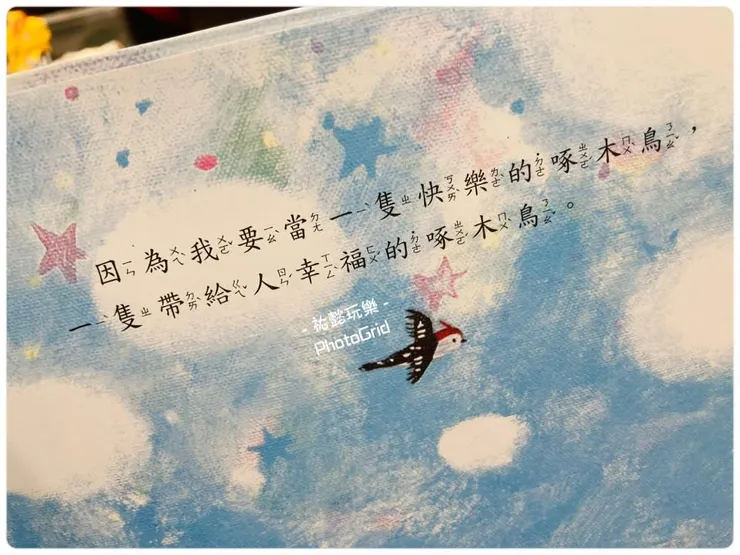 因為我要當一隻快樂的啄木鳥，
一隻帶給人幸福的啄木鳥。
- 祐懿玩樂 -
PhotoGrid